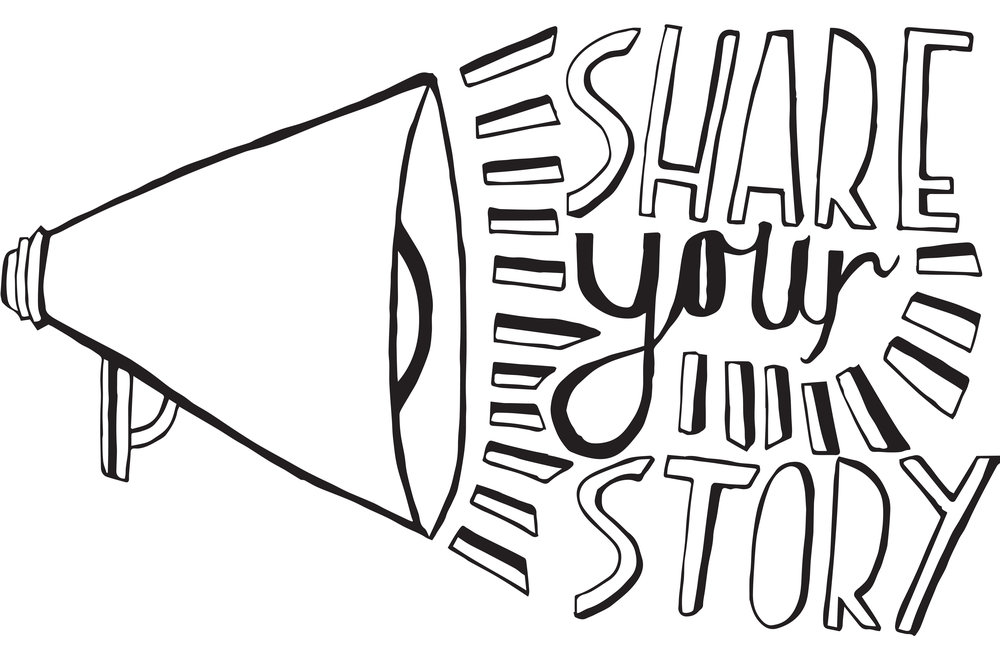 SHARE
your
STORY